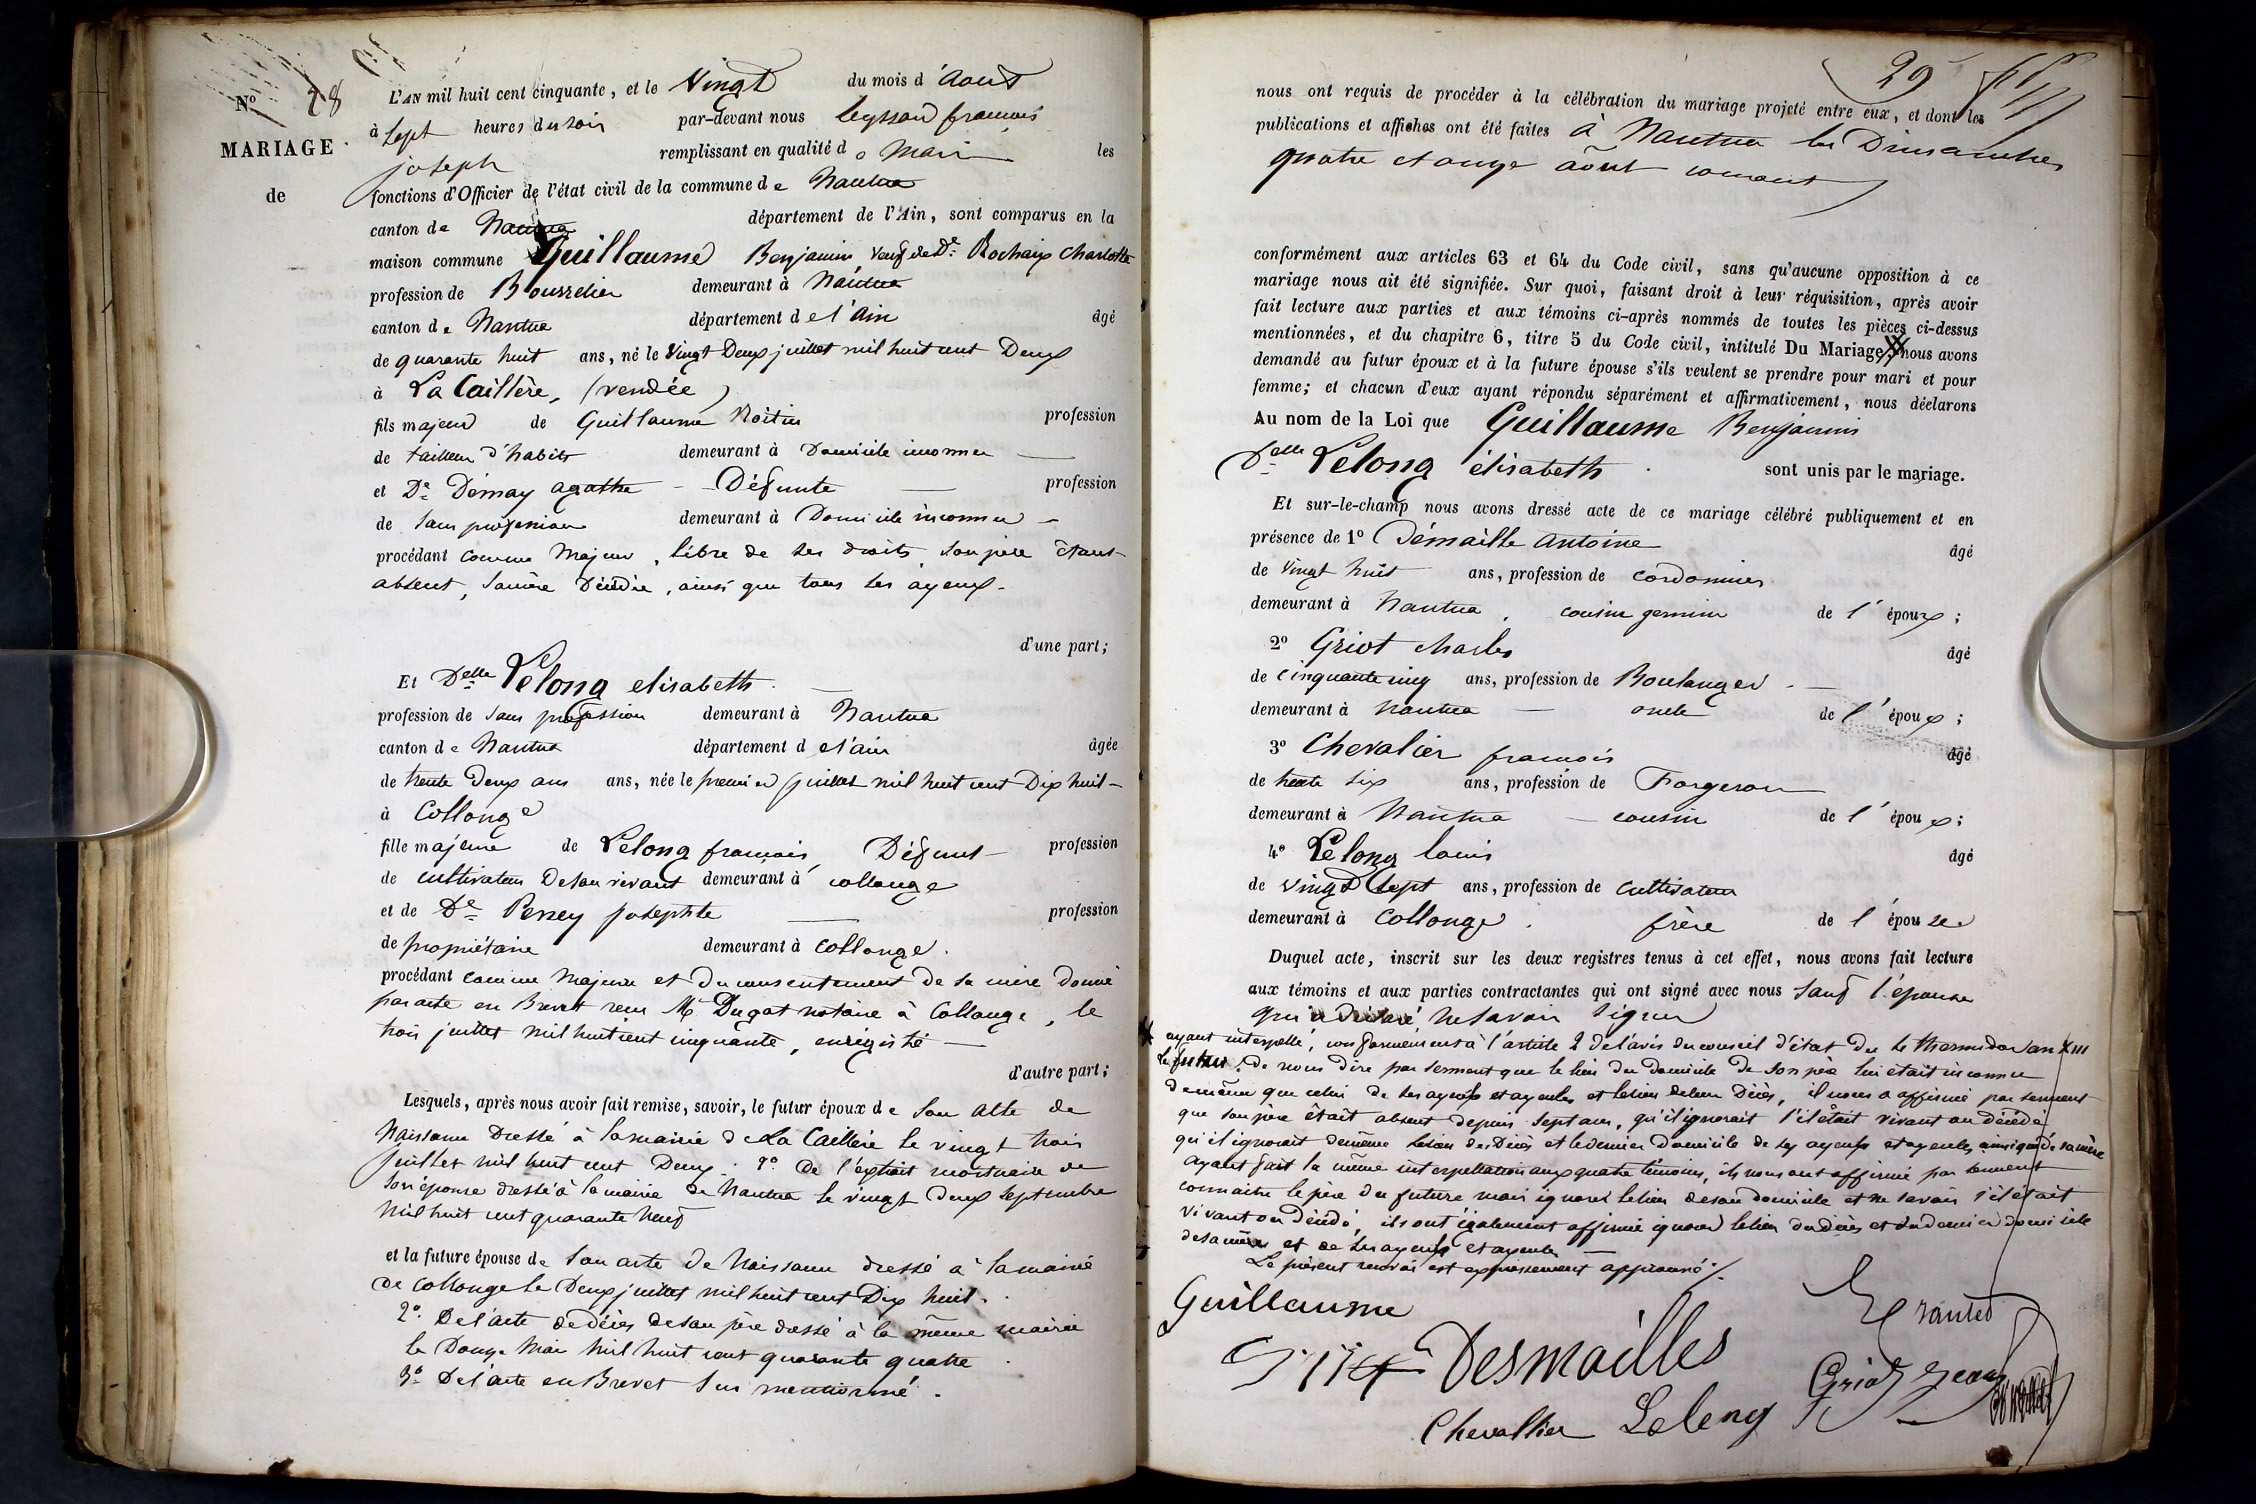 N° 28
MARIAGE
de
L'AN mil huit cent cinquante, et le Vingt du mois d'Aout
à Sept heures du soir par-devant nous Leyssard françois
joseph remplissant en qualité de Mair les
fonctions d'Officier de l'état civil de la commune de Nantua
canton de Nantua département de l'Ain, sont comparus en la
maison commune Guillaume Benjamin veuf de De Rochaix Charlotte
profession de Bourrelier demeurant à Nantua
canton de Nantua département de l'Ain âgé
de quarante huit ans, né le Vingt Deux juillet mil huit cent Deux
à La Caillère, (vendée)
fils majeur de Guillaume Noitin profession
de tailleur d'habits demeurant à Domicile inconnu
et De Démay agathe - Défunte profession
de sans profession demeurant à Domicile inconnu
procédant comme Majeur, libre de ses droits son père étant
absent, sa mère Décédée, ainsi que tous ses ayeux.
d'une part;
Et Delle Lelong elisabeth.
profession de sans profession demeurant à Nantua
canton de Nantua département de l'ain âgée
de trente deux ans ans, née le premier juillet mil huit cent Dix huit
à Collonge
fille majeure de Lelong françois, Défunt profession
de cultivateur De son vivant demeurant à collonge
et de De Perrey josephte profession
de propriétaire demeurant à collonge.
procédant comme Majeure et du consentement de sa mère donné
par acte en Brevet reçu Me Dugat notaire à Collonge, le
trois juillet mil huit cent cinquante, enrégistré
d'autre part;
Lesquels, après nous avoir fait remise, savoir, le futur époux de son acte de
Naissance Dressé à la mairie de La Caillère le vingt trois
juillet mil huit cent Deux; 2° De l'extrait mortuaire de
son épouse dressé à la mairie de Nantua le vingt deux septembre
mil huit cent quarante neuf
et la future épouse de son acte de Naissance dressé à la mairie
de Collonge le Deux juillet mil huit cent Dix huit.
2° De l'acte de décès de son père dressé à la même mairie
le Douze Mai mil huit cent quarante quatre.
3° De l'acte en Brevet sus mentionné.
29
nous ont requis de procéder à la célébration du mariage projeté entre eux, et dont les
publications et affiches ont été faites à Nantua les Dimanches
quatre et onze août courant
conformément aux articles 63 et 64 du Code civil, sans qu'aucune opposition à ce
mariage nous ait été signifiée. Sur quoi, faisant droit à leur réquisition, après avoir
fait lecture aux parties et aux témoins ci-après nommés de toutes les pièces ci-dessus
mentionnées, et du chapitre 6, titre 5 du Code civil, intitulé Du Mariage, nous avons
demandé au futur époux et à la future épouse s'ils veulent se prendre pour mari et pour
femme; et chacun d'eux ayant répondu séparément et affirmativement, nous déclarons
Au nom de la Loi que Guillaume Benjamin
Delle Lelong élisabeth sont unis par le mariage.
Et sur-le-champ nous avons dressé acte de ce mariage célébré publiquement et en
présence de 1° Démaille Antoine âgé
de Vingt huit ans, profession de cordonnier
demeurant à Nantua, cousin germain de l'époux;
2° Griot charles âgé
de cinquante cinq ans, profession de Boulanger
demeurant à Nantua oncle de l'époux;
3° Chevalier françois âgé
de trente six ans, profession de Forgeron
demeurant à Nantua cousin de l'époux;
4° Lelong louis âgé
de Vingt Sept ans, profession de Cultivateur
demeurant à Collonge. frère de l'épouse
Duquel acte, inscrit sur les deux registres tenus à cet effet, nous avons fait lecture
aux témoins et aux parties contractantes qui ont signé avec nous Sauf l'épouse
qui a Déclaré Ne savoir signer
ayant interpellé, conformément à l'article 2 de l'avis du conseil d'état du 4 thermidor an XIII
le futur, de nous dire par serment que le lieu du domicile de son père lui était inconnu
de même que celui de ses ayeux et ayeules et le lieu de leur Décès, il nous a affirmé par serment
que son père était absent depuis sept ans, qu'il ignorait s'il était vivant ou décédé
qu'il ignorait de même le lieu des Décès et le dernier domicile de ses ayeux et ayeules ainsi que de sa mère
Ayant fait la même interpellation aux quatre témoins, ils nous ont affirmé par serment
connaitre le père du future mais ignorer le lieu de son domicile et ne savoir s'il était
vivant ou décédé, ils ont également affirmé ignorer le lieu du décès et du dernier domicile
de sa mère et de ses ayeux et ayeules
Le présent renvoi est expressement approuvé
Guillaume
Desmailles
Griot
Chevallier Lelong